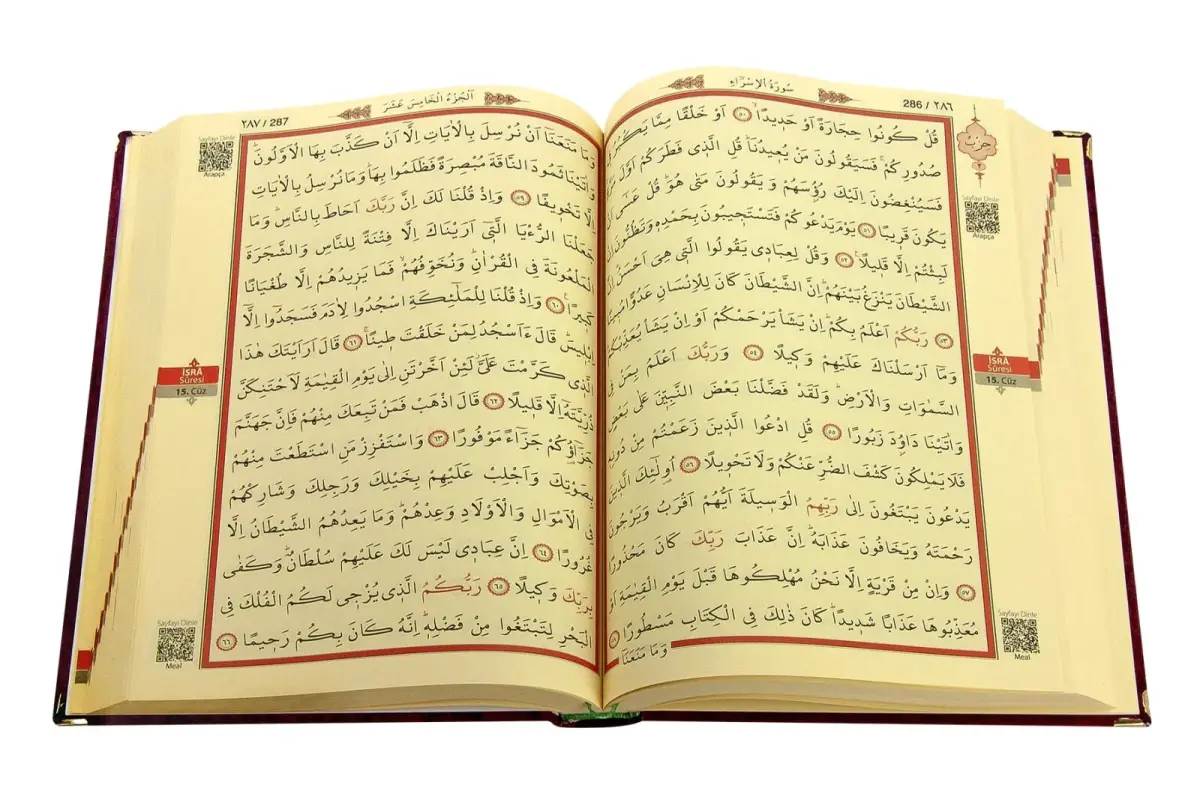 ٢٨٦ / 286
سُورَةُ الْاِسْرَاءِ
قُلْ كُونُوا حِجَارَةً اَوْ حَدِيدًاۙ ٥٠ اَوْ خَلْقًا مِمَّا يَكْبُرُ
صُدُورِكُمْۚ فَسَيَقُولُونَ مَنْ يُعِيدُنَاۜ قُلِ الَّذ۪ي فَطَرَكُمْ اَوَّلَ
فَسَيُنْغِضُونَ اِلَيْكَ رُؤُسَهُمْ وَيَقُولُونَ مَتٰى هُوَۜ قُلْ عَسٰٓى
يَكُونَ قَر۪يبًا ٥١ يَوْمَ يَدْعُوكُمْ فَتَسْتَج۪يبُونَ بِحَمْدِه۪ وَتَظُنُّونَ
لَبِثْتُمْ اِلَّا قَل۪يلًا۟ ٥٢ وَقُلْ لِعِبَاد۪ي يَقُولُوا الَّت۪ي هِيَ اَحْسَنُ
الشَّيْطَانَ يَنْزَغُ بَيْنَهُمْۜ اِنَّ الشَّيْطَانَ كَانَ لِلْاِنْسَانِ عَدُوًّا
٥٣ رَبُّكُمْ اَعْلَمُ بِكُمْۜ اِنْ يَشَأْ يَرْحَمْكُمْ اَوْ اِنْ يَشَأْ يُعَذِّبْكُمْ
وَمَٓا اَرْسَلْنَاكَ عَلَيْهِمْ وَك۪يلًا ٥٤ وَرَبُّكَ اَعْلَمُ بِمَنْ
السَّمٰوَاتِ وَالْاَرْضِۜ وَلَقَدْ فَضَّلْنَا بَعْضَ النَّبِيّ۪نَ عَلٰى بَعْضٍ
وَاٰتَيْنَا دَاوُ۫دَ زَبُورًا ٥٥ قُلِ ادْعُوا الَّذ۪ينَ زَعَمْتُمْ مِنْ دُونِه۪
فَلَا يَمْلِكُونَ كَشْفَ الضُّرِّ عَنْكُمْ وَلَا تَحْو۪يلًا ٥٦ اُو۬لٰٓئِكَ الَّذ۪ينَ
يَدْعُونَ يَبْتَغُونَ اِلٰى رَبِّهِمُ الْوَس۪يلَةَ اَيُّهُمْ اَقْرَبُ وَيَرْجُونَ
رَحْمَتَهُ وَيَخَافُونَ عَذَابَهُۜ اِنَّ عَذَابَ رَبِّكَ كَانَ مَحْذُورًا
٥٧ وَاِنْ مِنْ قَرْيَةٍ اِلَّا نَحْنُ مُهْلِكُوهَا قَبْلَ يَوْمِ الْقِيٰمَةِ اَوْ
مُعَذِّبُوهَا عَذَابًا شَد۪يدًاۜ كَانَ ذٰلِكَ فِي الْكِتَابِ مَسْطُورًا ٥٨
وَمَا مَنَعَنَٓا
حزب
Sayfayı Dinle
Arapça
İSRÂ
Sûresi
15. Cüz
Sayfayı Dinle
Meal
اَلْجُزْءُ الْخَامِسَ عَشَرَ
٢٨٧ / 287
وَمَا مَنَعَنَٓا اَنْ نُرْسِلَ بِالْاٰيَاتِ اِلَّٓا اَنْ كَذَّبَ بِهَا الْاَوَّلُونَۜ
وَاٰتَيْنَا ثَمُودَ النَّاقَةَ مُبْصِرَةً فَظَلَمُوا بِهَاۜ وَمَا نُرْسِلُ بِالْاٰيَاتِ
اِلَّا تَخْو۪يفًا ٥٩ وَاِذْ قُلْنَا لَكَ اِنَّ رَبَّكَ اَحَاطَ بِالنَّاسِۜ وَمَا
جَعَلْنَا الرُّءْيَا الَّت۪ٓي اَرَيْنَاكَ اِلَّا فِتْنَةً لِلنَّاسِ وَالشَّجَرَةَ
الْمَلْعُونَةَ فِي الْقُرْاٰنِۜ وَنُخَوِّفُهُمْۙ فَمَا يَز۪يدُهُمْ اِلَّا طُغْيَانًا
كَب۪يرًا۟ ٦٠ وَاِذْ قُلْنَا لِلْمَلٰٓئِكَةِ اسْجُدُوا لِاٰدَمَ فَسَجَدُٓوا اِلَّٓا
اِبْل۪يسَۜ قَالَ ءَاَسْجُدُ لِمَنْ خَلَقْتَ ط۪ينًاۚ ٦١ قَالَ اَرَاَيْتَكَ هٰذَا
الَّذ۪ي كَرَّمْتَ عَلَيَّۘ لَئِنْ اَخَّرْتَنِ اِلٰى يَوْمِ الْقِيٰمَةِ لَاَحْتَنِكَنَّ
ذُرِّيَّتَهُٓ اِلَّا قَل۪يلًا ٦٢ قَالَ اذْهَبْ فَمَنْ تَبِعَكَ مِنْهُمْ فَاِنَّ جَهَنَّمَ
جَزَٓاؤُ۬كُمْ جَزَٓاءً مَوْفُورًا ٦٣ وَاسْتَفْزِزْ مَنِ اسْتَطَعْتَ مِنْهُمْ
بِصَوْتِكَ وَاَجْلِبْ عَلَيْهِمْ بِخَيْلِكَ وَرَجِلِكَ وَشَارِكْهُمْ
فِي الْاَمْوَالِ وَالْاَوْلَادِ وَعِدْهُمْۜ وَمَا يَعِدُهُمُ الشَّيْطَانُ اِلَّا
غُرُورًا ٦٤ اِنَّ عِبَاد۪ي لَيْسَ لَكَ عَلَيْهِمْ سُلْطَانٌۜ وَكَفٰى
بِرَبِّكَ وَك۪يلًا ٦٥ رَبُّكُمُ الَّذ۪ي يُزْج۪ي لَكُمُ الْفُلْكَ فِي
الْبَحْرِ لِتَبْتَغُوا مِنْ فَضْلِه۪ۜ اِنَّهُ كَانَ بِكُمْ رَح۪يمًا ٦٦
Sayfayı Dinle
Arapça
İSRÂ
Sûresi
15. Cüz
Sayfayı Dinle
Meal